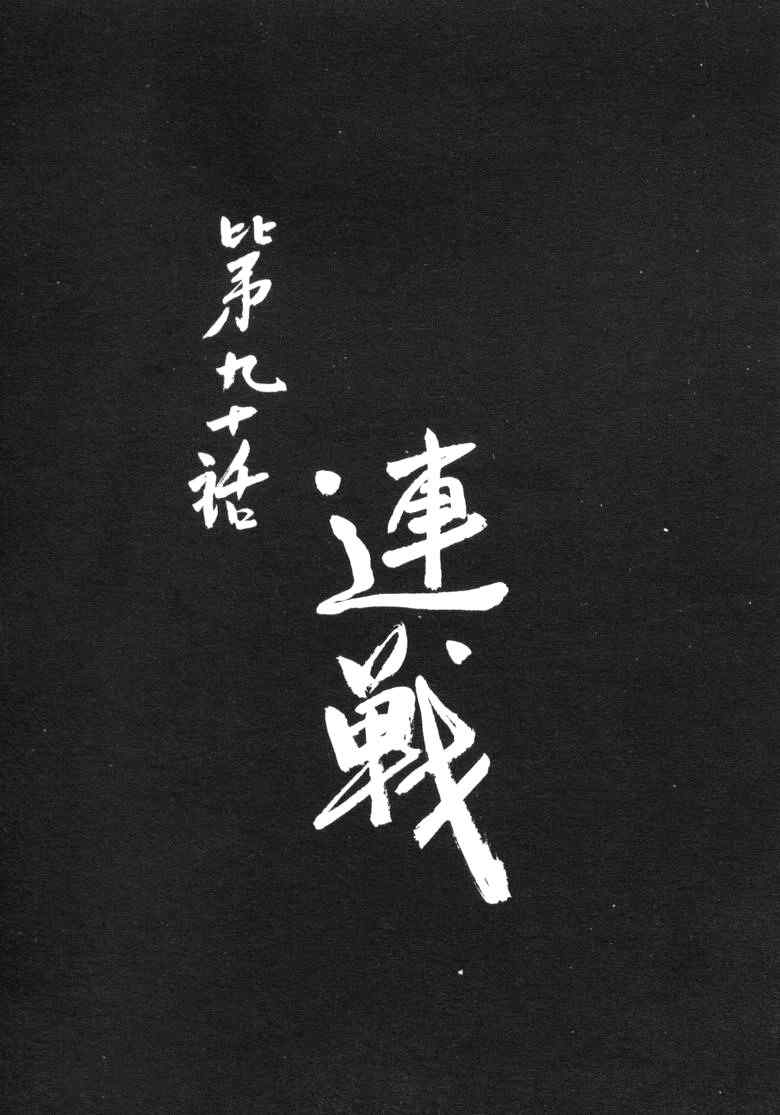 第九十話
連戦